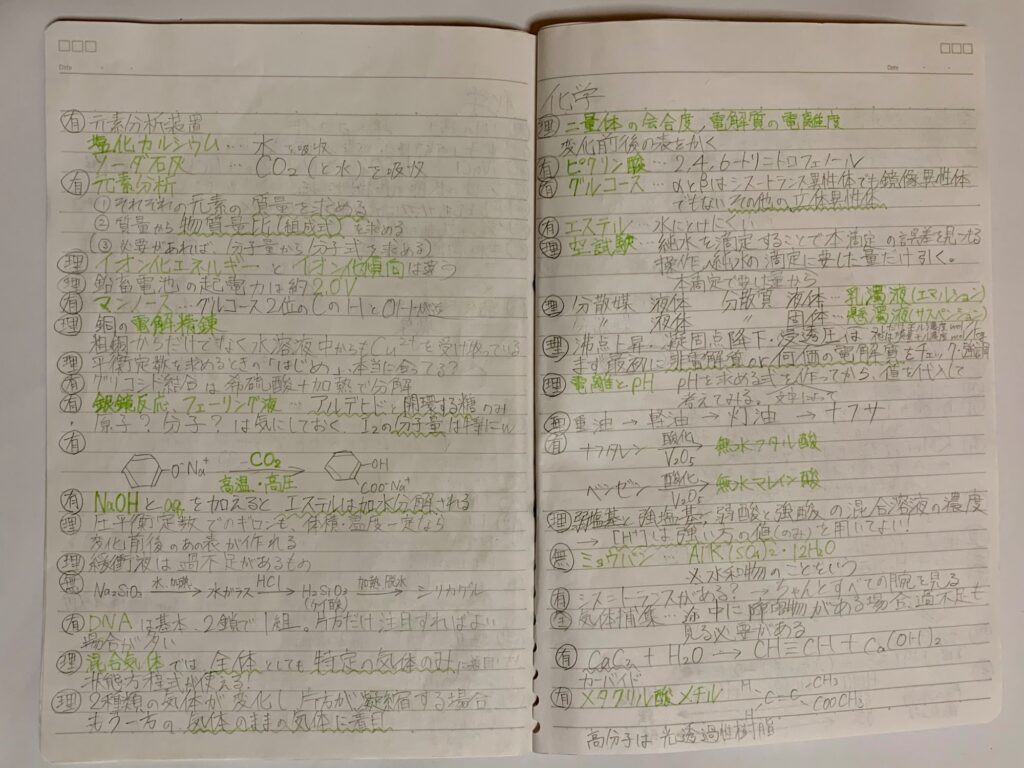 Date
有 元素分析装置
塩化カルシウム … 水を吸収
ソーダ石灰 … CO₂(と水)を吸収
有 元素分析
① それぞれの元素の質量を求める
② 質量から物質量比(組成式)を求める
(③ 必要があれば、分子量から分子式を求める)
理 イオン化エネルギーとイオン化傾向は違う
理 鉛蓄電池の起電力は約2.0V
有 マンノース…グルコース2位のCのHとOHが
理 銅の電解精錬
粗銅からだけでなく水溶液中からもCu²⁺を受け取っている
理 平衡定数を求めるときの「はじめ」、本当に合ってる?
有 グリコシド結合は希硫酸+加熱で分解
有 銀鏡反応、フェーリング液…アルデヒドと開環する糖のみ
・原子?分子?は気にしておく I₂の分子量は
有
O⁻Na⁺ CO₂ 高温・高圧 OH COO⁻Na⁺
有 NaOHとaqを加えるとエステルは加水分解される
理 圧平衡定数でのギロンも 体積・温度一定なら
変化前後のあの表が作れる
理 緩衝液は過不足があるもの
無 Na₂SiO₃ 水加熱→ 水ガラス HCl→ H₂SiO₃ 加熱脱水→ シリカゲル
(ケイ酸)
有 DNAは基本、2鎖で1組。片方だけ注目すればよい
場合が多い
理 混合気体では全体としても特定の気体のみに着目
状態方程式が使える
理 2種類の気体が変化し、片方が凝縮する場合
もう一方の気体のままの気体に着目
Date
化学
理 二量体の会合度、電解質の電離度
変化前後の表をかく
有 ピクリン酸 … 2,4,6-トリニトロフェノール
有 グルコース … αとβはシス-トランス異性体でも鏡像異性体
でもない その他の立体異性体
有 エステル … 水にとけにくい
理 空試験 … 純水を滴定することで本滴定の誤差を見つける
操作、純水の滴定に要した量だけ引く。
本滴定で要した量から
理 分散媒 液体 分散質 液体 … 乳濁液(エマルション)
〃 液体 〃 固体 … 懸濁液(サスペンション)
理 沸点上昇・凝固点降下・浸透圧は
まず最初に非電解質or何価の電解質をチェック
理 電離とpH pHを求める式を作ってから、値を代入して
考えてみる。
理 重油 → 軽油 → 灯油 → ナフサ
有 ナフタレン 酸化 V₂O₅→ 無水フタル酸
ベンゼン 酸化 V₂O₅→ 無水マレイン酸
理 弱塩基と強塩基、弱酸と強酸の混合溶液の濃度
→ [H⁺]は強い方の値(のみ)を用いてよい!!
無 ミョウバン … AlK(SO₄)₂・12H₂O
※水和物のことをいう
有 シスとトランスがある? → ちゃんとすべての腕を見る
無 気体捕集 … 途中に障害物がある場合、過不足も
見る必要がある
有 CaC₂ + H₂O → CH≡CH + Ca(OH)₂
カーバイド
有 メタクリル酸メチル H C=C CH₃ H COOCH₃
高分子は光透過性樹脂